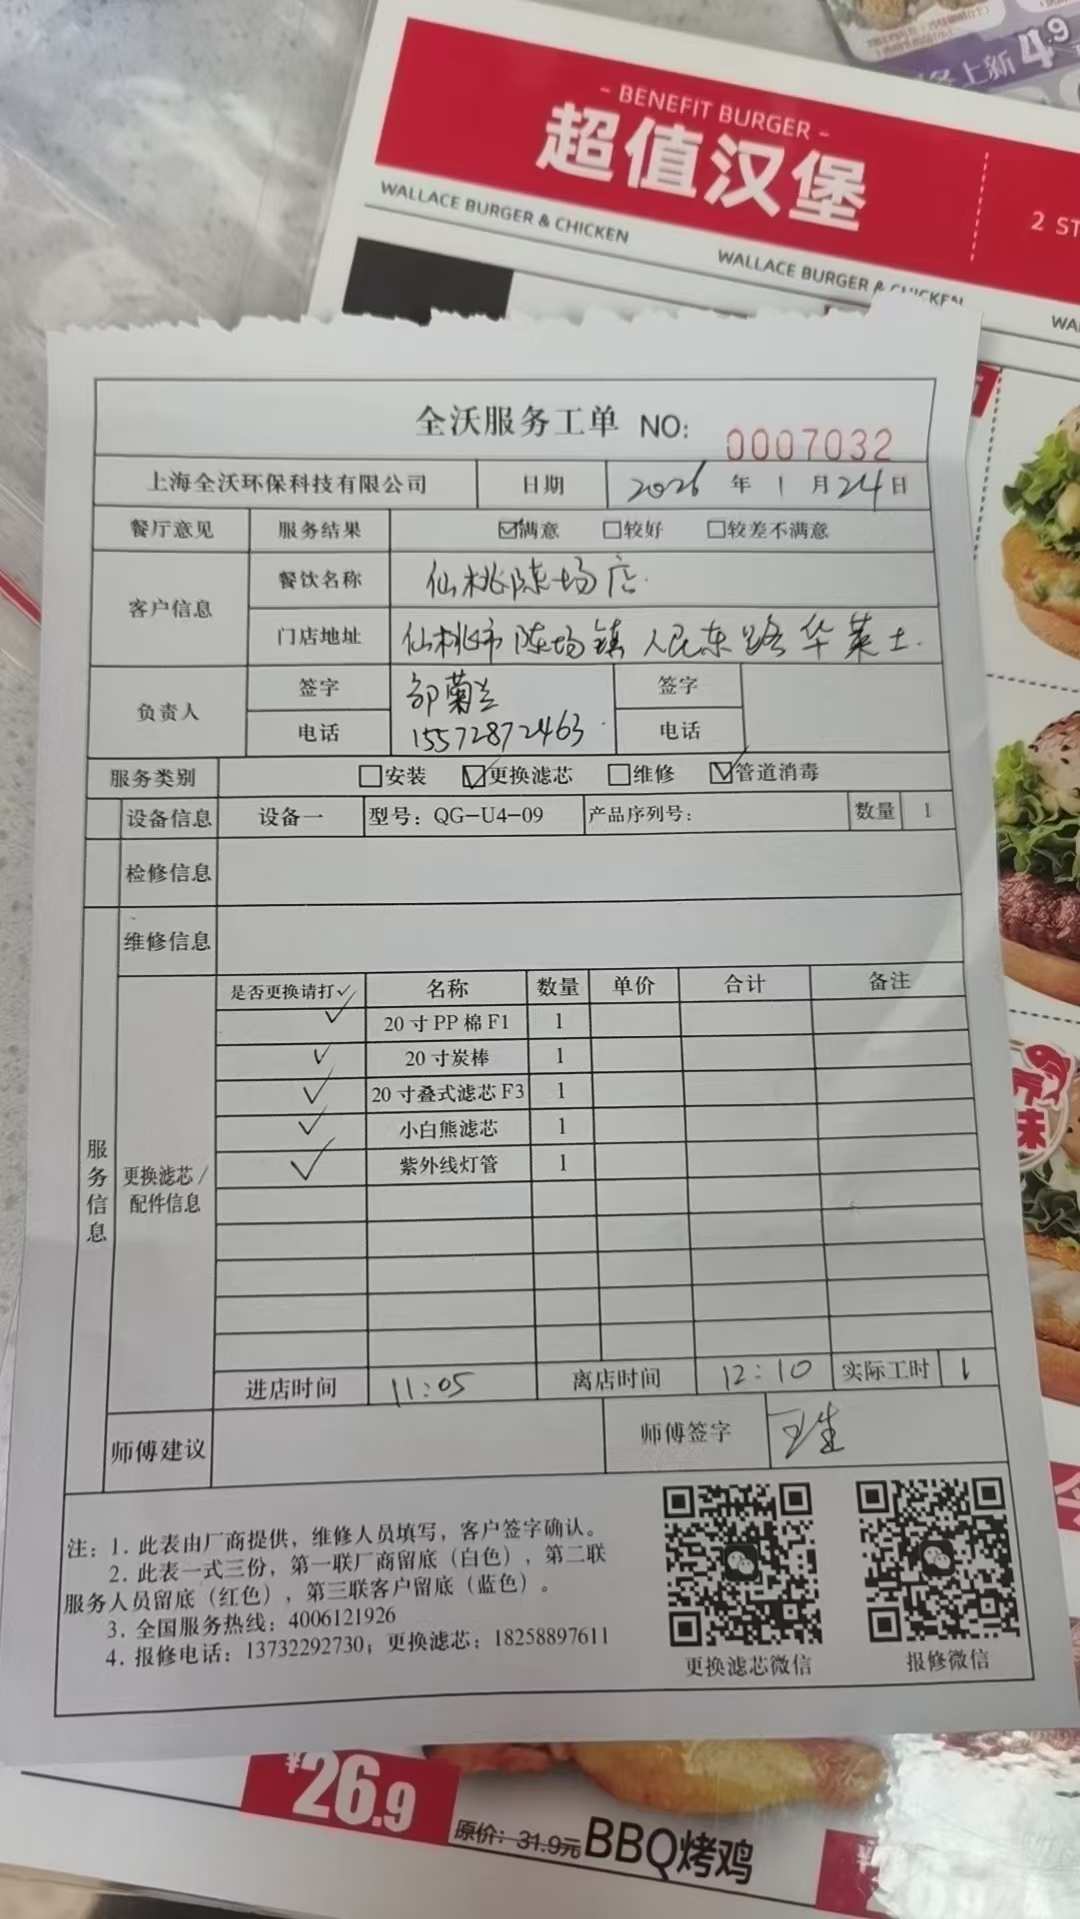 条上新 4.9
- BENEFIT BURGER -
超值汉堡
2 ST
WALLACE BURGER & CHICKEN
WALLACE BURGER & CHICKEN
WA
全沃服务工单 NO: 0007032
上海全沃环保科技有限公司 日期 2026 年 1 月 24 日
餐厅意见 服务结果 ☑满意 □较好 □较差不满意
客户信息 餐饮名称 仙桃陈场店.
门店地址 仙桃市陈场镇人民东路华莱士.
负责人 签字 邹菊兰 签字
电话 15572872463 电话
服务类别 □安装 ☑更换滤芯 □维修 ☑管道消毒
设备信息 设备一 型号: QG-U4-09 产品序列号: 数量 1
检修信息
维修信息
是否更换请打✓ 名称 数量 单价 合计 备注
✓ 20寸PP棉F1 1
✓ 20寸炭棒 1
✓ 20寸叠式滤芯F3 1
✓ 小白熊滤芯 1
✓ 紫外线灯管 1
服务信息
更换滤芯/
配件信息
进店时间 11:05 离店时间 12:10 实际工时 1
师傅建议 师傅签字
注: 1. 此表由厂商提供, 维修人员填写, 客户签字确认。
2. 此表一式三份, 第一联厂商留底(白色), 第二联
服务人员留底(红色), 第三联客户留底(蓝色)。
3. 全国服务热线: 4006121926
4. 报修电话: 13732292730; 更换滤芯: 18258897611
更换滤芯微信
报修微信
¥26.9
原价: 31.9元 BBQ烤鸡